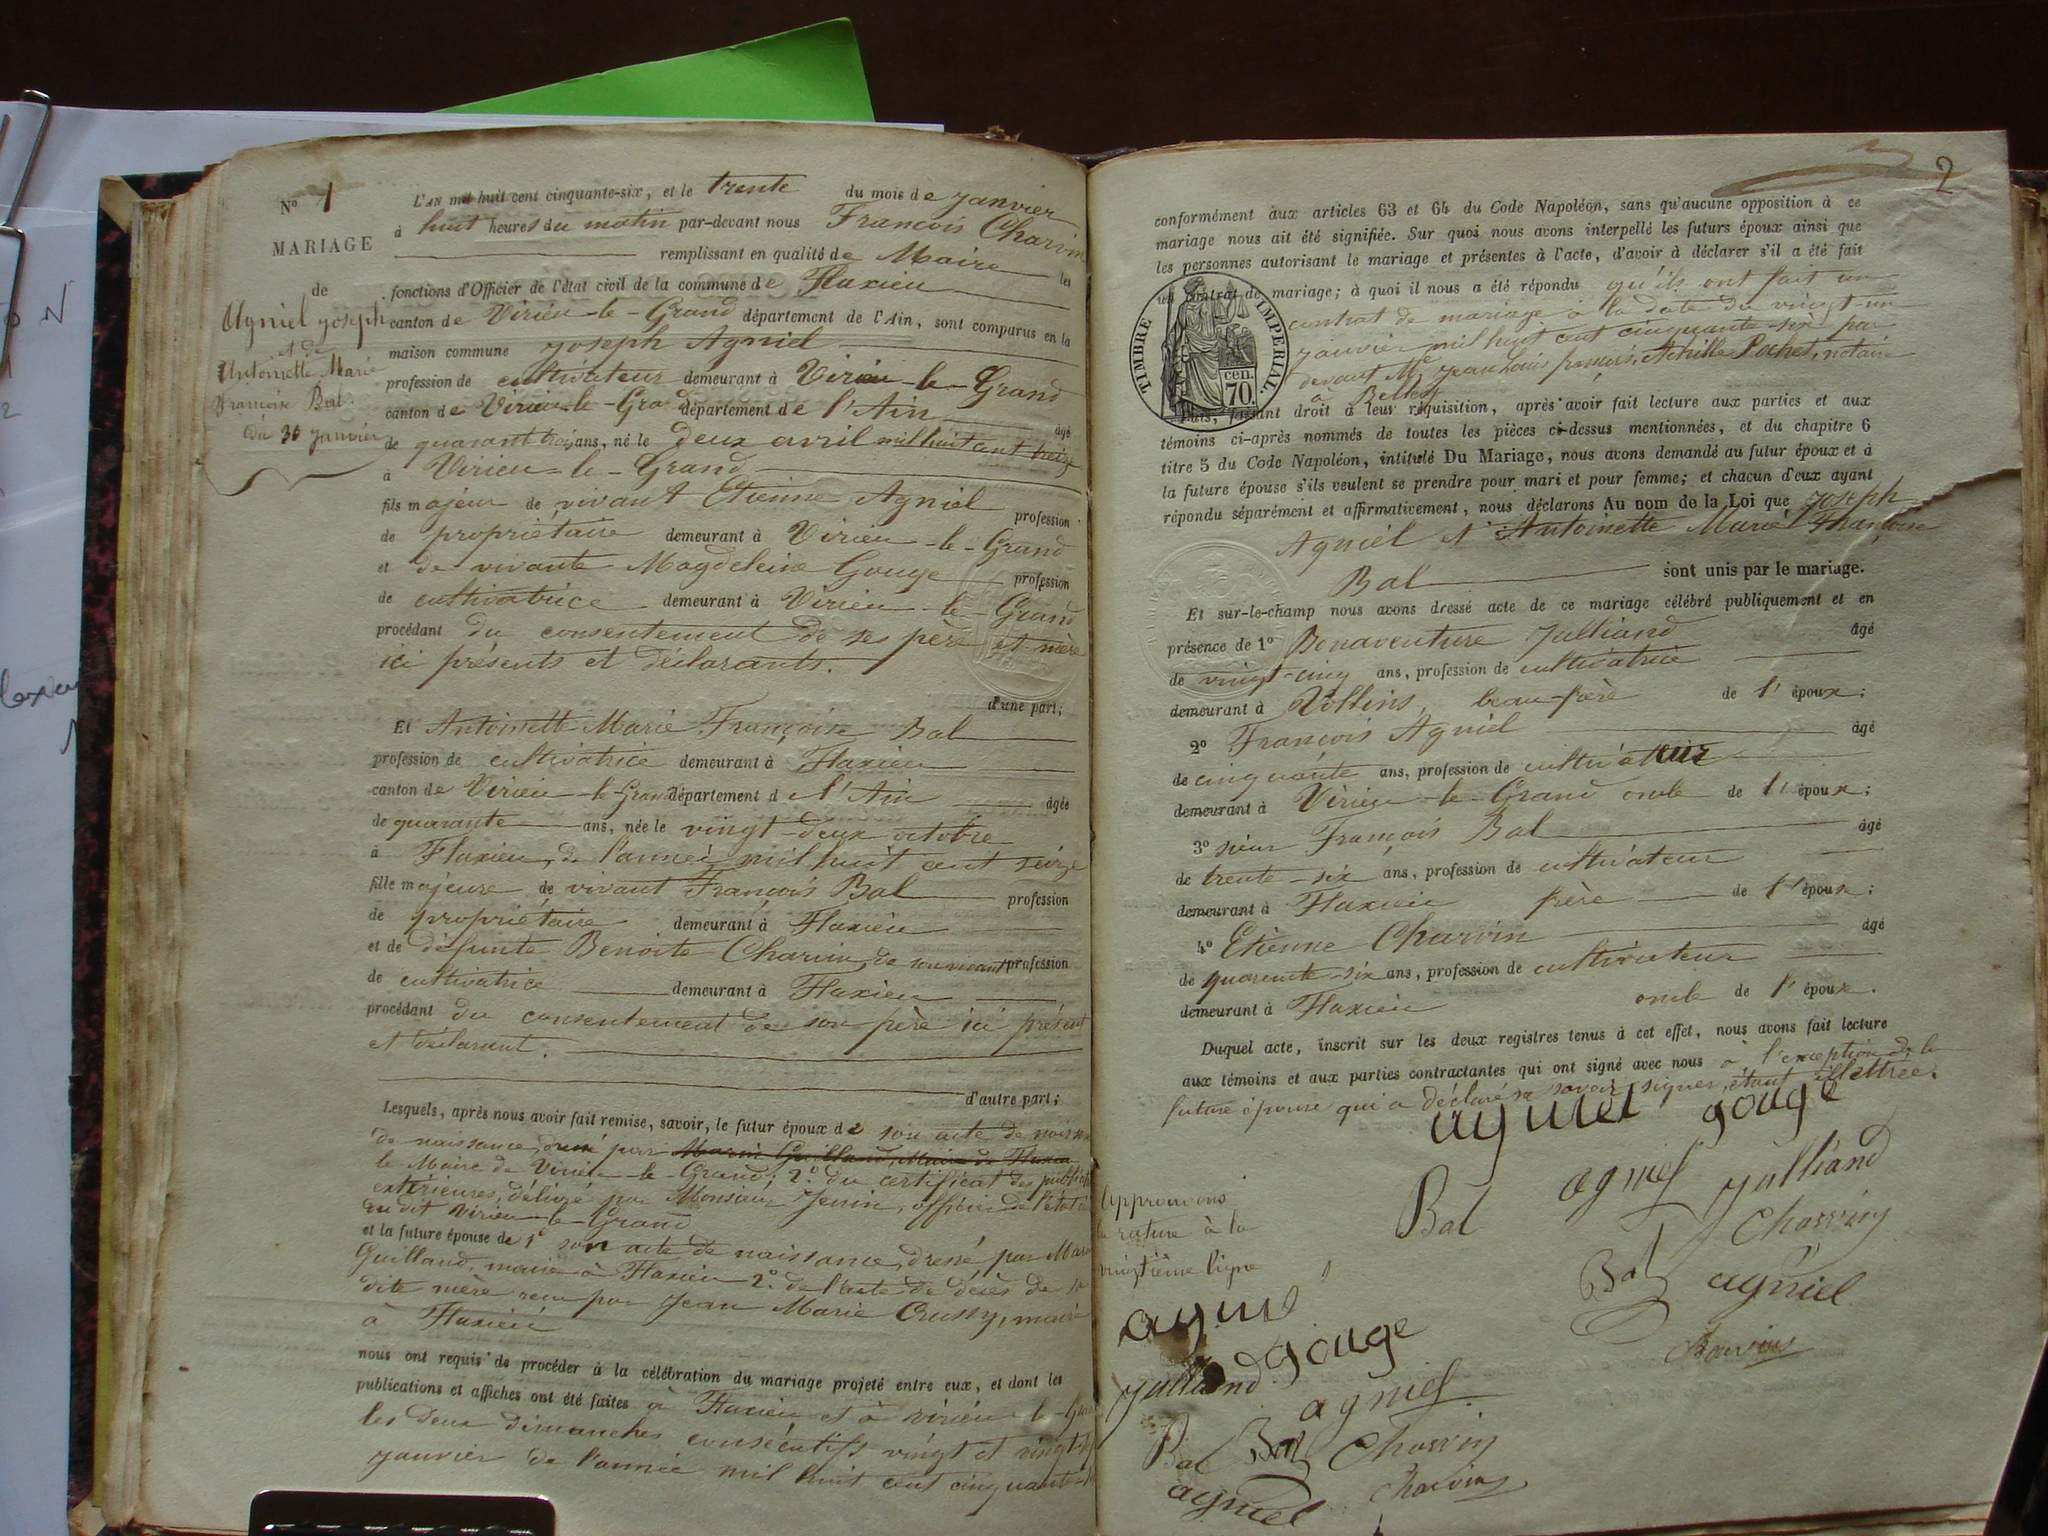 N° 1
MARIAGE
de
Agniel Joseph
et de
Antoinette Marie
Françoise Bal.
du 30 janvier
L'AN mil huit cent cinquante-six, et le trente du mois de janvier
à huit heures du matin par-devant nous François Charvin
remplissant en qualité de Maire les
fonctions d'Officier de l'état civil de la commune de Flaxieu
canton de Virieu-le-Grand département de l'Ain, sont comparus en la
maison commune Joseph Agniel
profession de cultivateur demeurant à Virieu-le-Grand
canton de Virieu-le-Grad département de l'Ain âgé
de quarant trois ans, né le deux avril mil huit cent treize
à Virieu-le-Grand
fils majeur de vivant Etienne Agniel profession
de propriétaire demeurant à Virieu-le-Grand
et de vivante Magdeleine Gouge profession
de cultivatrice demeurant à Virieu-le-Grand
procédant du consentement de ses père et mère
ici présents et déclarants.
d'une part;
Et Antoinette Marie Françoise Bal
profession de cultivatrice demeurant à Flaxieu
canton de Virieu-le-Grand département de l'Ain âgée
de quarante ans, née le vingt-deux octobre
à Flaxieu, de l'année mil huit cent seize
fille majeure de vivant François Bal profession
de propriétaire demeurant à Flaxieu
et de défunte Benoite Charvin, de son vivant profession
de cultivatrice demeurant à Flaxieu
procédant du consentement de son père ici présent
et déclarant.
d'autre part;
Lesquels, après nous avoir fait remise, savoir, le futur époux de son acte de
de naissance, dressé par Marin Guilland, Maire de Flaxieu
le Maire de Virieu-le-Grand; 2° du certificat des
extérieures, délivré par Monsieur Jenin, officier de l'état
au dit Virieu-le-Grand
et la future épouse de 1° son acte de naissance, dressé par
Guilland, maire à Flaxieu 2° de l'acte de décès de sa
dite mère reçu par Jean Marie Crussy, maire
à Flaxieu
nous ont requis de procéder à la célébration du mariage projeté entre eux, et dont les
publications et affiches ont été faites à Flaxieu et à Virieu-le-
les deux dimanches consécutifs vingt et
janvier de l'année mil huit cent cinquante-
2
conformément aux articles 63 et 64 du Code Napoléon, sans qu'aucune opposition à ce
mariage nous ait été signifiée. Sur quoi nous avons interpellé les futurs époux ainsi que
les personnes autorisant le mariage et présentes à l'acte, d'avoir à déclarer s'il a été fait
un contrat de mariage; à quoi il nous a été répondu qu'ils ont fait un
contrat de mariage à la date du vingt-un
janvier mil huit cent cinquante-six par
devant Me Jean Louis Achille Pochet, notaire
à Belley
TIMBRE IMPERIAL
cen.
70.
Puis, faisant droit à leur réquisition, après avoir fait lecture aux parties et aux
témoins ci-après nommés de toutes les pièces ci-dessus mentionnées, et du chapitre 6
titre 5 du Code Napoléon, intitulé Du Mariage, nous avons demandé au futur époux et à
la future épouse s'ils veulent se prendre pour mari et pour femme; et chacun d'eux ayant
répondu séparément et affirmativement, nous déclarons Au nom de la Loi que Joseph
Agniel et Antoinette Marie Françoise
Bal sont unis par le mariage.
Et sur-le-champ nous avons dressé acte de ce mariage célébré publiquement et en
présence de 1° Bonaventure Julliand âgé
de vingt-cinq ans, profession de cultivatrice
demeurant à beau-frère de l'époux;
2° François Agniel âgé
de cinquante ans, profession de cultivateur
demeurant à Virieu-le-Grand oncle de l'époux;
3° sieur François Bal âgé
de trente-six ans, profession de cultivateur
demeurant à Flaxieu frère de l'épouse;
4° Etienne Charvin âgé
de quarante-six ans, profession de cultivateur
demeurant à Flaxieu oncle de l'épouse.
Duquel acte, inscrit sur les deux registres tenus à cet effet, nous avons fait lecture
aux témoins et aux parties contractantes qui ont signé avec nous à l'exception de la
future épouse qui a déclaré ne savoir signer, étant illettrée.
agniel gouge
Bal agniel julliand
Charvin
Bal agniel
Charvin
Approuvons
la rature à la
vingtième ligne
agniel
gouge
julliand
agniel
Bal Bal Charvin
agniel Charvin